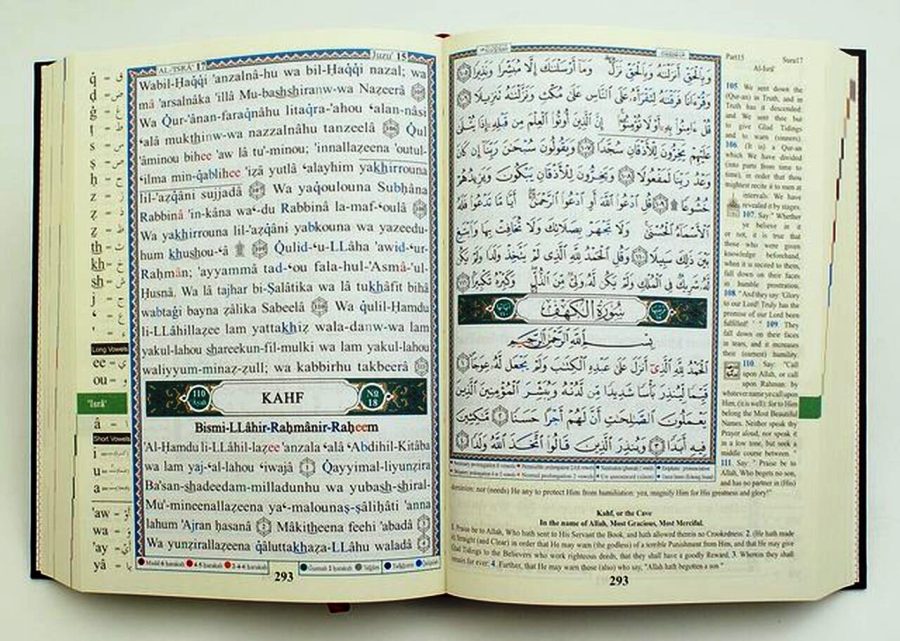 AL-'ISRA' 17
Juzu' 15
Wabil-Haqqi 'anzalnâ-hu wa bil-Haqqi nazal; wa
mâ 'arsalnâka 'illâ Mu-bashshiranw-wa Nazeerâ
Wa Qur-'ânan-faraqnâhu litaqra-'ahou ʻalan-nâsi
ʻalâ mukthinw-wa nazzalnâhu tanzeelâ Qul
'âminou bihee 'aw lâ tu'-minou; 'innallazeena 'outul-
ʻilma min-qablihee 'izâ yutlâ ʻalayhim yakhirrouna
lil-'azqâni sujjadâ Wa yaqoulouna Subhâna
Rabbinâ 'in-kâna waʻ-du Rabbinâ la-maf-ʻoulâ
Wa yakhirrouna lil-'azqâni yabkouna wa yazeedu-
hum khushou-ʻâ Qulid-ʻu-LLâha 'awid-ʻur-
Rahmân; 'ayyammâ tad-ʻou fala-hul-'Asmâ-'ul-
Husnâ. Wa lâ tajhar bi-Salâtika wa lâ tukhâfit bihâ
wabtaği bayna zâlika Sabeelâ Wa qulil-Hamdu
li-LLâhillazee lam yattakhiz wala-dan-w-wa lam
yakul-lahou shareekun-fil-mulki wa lam yakul-lahou
waliyyum-minaz-zull; wa kabbirhu takbeerâ
110 Ayah
KAHF
No 18
Bismi-LLâhir-Rahmânir-Raheem
'Al-Hamdu li-LLâhil-lazee 'anzala ʻalâ ʻAbdihil-Kitâba
wa lam yaj-ʻal-lahou ʻiwajâ Qayyimal-liyunzira
Ba'san-shadeedam-milladunhu wa yubash-shiral-
Mu'-mineenallazeena yaʻ-malounas-sâlihâti 'anna
lahum 'Ajran hasanâ Mâkitheena feehi 'abadâ
Wa yunzirallazeena qâluttakhaza-LLâhu waladâ
293
Long Vowels
ee = ي
ou = و
'Isrâ'
Short Vowels
وَبِالْحَقِّ أَنزَلْنَاهُ وَبِالْحَقِّ نَزَلَ وَمَا أَرْسَلْنَاكَ إِلَّا مُبَشِّرًا وَنَذِيرًا
وَقُرْءَانًا فَرَقْنَاهُ لِتَقْرَأَهُ عَلَى النَّاسِ عَلَى مُكْثٍ وَنَزَّلْنَاهُ تَنزِيلًا
قُلْ ءَامِنُوا بِهِ أَوْ لَا تُؤْمِنُوا إِنَّ الَّذِينَ أُوتُوا الْعِلْمَ مِن قَبْلِهِ إِذَا يُتْلَى
عَلَيْهِمْ يَخِرُّونَ لِلْأَذْقَانِ سُجَّدًا وَيَقُولُونَ سُبْحَانَ رَبِّنَا إِن كَانَ
وَعْدُ رَبِّنَا لَمَفْعُولًا وَيَخِرُّونَ لِلْأَذْقَانِ يَبْكُونَ وَيَزِيدُهُمْ
خُشُوعًا قُلِ ادْعُوا اللَّهَ أَوِ ادْعُوا الرَّحْمَنَ أَيًّا مَّا تَدْعُوا فَلَهُ
الْأَسْمَاءُ الْحُسْنَى وَلَا تَجْهَرْ بِصَلَاتِكَ وَلَا تُخَافِتْ بِهَا وَابْتَغِ
بَيْنَ ذَلِكَ سَبِيلًا وَقُلِ الْحَمْدُ لِلَّهِ الَّذِي لَمْ يَتَّخِذْ وَلَدًا وَلَمْ يَكُن
لَّهُ شَرِيكٌ فِي الْمُلْكِ وَلَمْ يَكُن لَّهُ وَلِيٌّ مِّنَ الذُّلِّ وَكَبِّرْهُ تَكْبِيرًا
سُورَةُ الْكَهْفِ
بِسْمِ اللَّهِ الرَّحْمَنِ الرَّحِيمِ
الْحَمْدُ لِلَّهِ الَّذِي أَنزَلَ عَلَى عَبْدِهِ الْكِتَابَ وَلَمْ يَجْعَل لَّهُ عِوَجًا
قَيِّمًا لِّيُنذِرَ بَأْسًا شَدِيدًا مِّن لَّدُنْهُ وَيُبَشِّرَ الْمُؤْمِنِينَ الَّذِينَ
يَعْمَلُونَ الصَّالِحَاتِ أَنَّ لَهُمْ أَجْرًا حَسَنًا مَّاكِثِينَ
فِيهِ أَبَدًا وَيُنذِرَ الَّذِينَ قَالُوا اتَّخَذَ اللَّهُ وَلَدًا
Part15
Sura17
Al-Isrâ'
105. We sent down the
(Qur-an) in Truth, and in
Truth has it descended:
and We sent thee but
to give Glad Tidings
and to warn (sinners).
106. (It is) a Qur-an
which We have divided
(into parts from time to
time), in order that thou
mightest recite it to men at
intervals: We have
revealed it by stages.
107. Say: "Whether
ye believe in it
or not, it is true that
those who were given
knowledge beforehand,
when it is recited to them,
fall down on their faces
in humble prostration,
108. "And they say: 'Glory
to our Lord! Truly has the
promise of our Lord been
fulfilled!' " 109. They
fall down on their faces
in tears, and it increases
their (earnest) humility.
110. Say: "Call
upon Allah, or call
upon Rahman: by
whatever name ye call upon
Him, (it is well): for to Him
belong the Most Beautiful
Names. Neither speak thy
Prayer aloud, nor speak it
in a low tone, but seek a
middle course between."
111. Say: "Praise be to
Allah, Who begets no son,
and has no partner in (His)
dominion: nor (needs) He any to protect Him from humiliation: yea, magnify Him for His greatness and glory!"
Kahf, or the Cave
In the name of Allah, Most Gracious, Most Merciful.
1. Praise be to Allah, Who hath sent to His Servant the Book, and hath allowed therein no Crookedness: 2. (He hath made
it) Straight (and Clear) in order that He may warn (the godless) of a terrible Punishment from Him, and that He may give
Glad Tidings to the Believers who work righteous deeds, that they shall have a goodly Reward, 3. Wherein they shall
remain for ever: 4. Further, that He may warn those (also) who say, "Allah hath begotten a son"
293